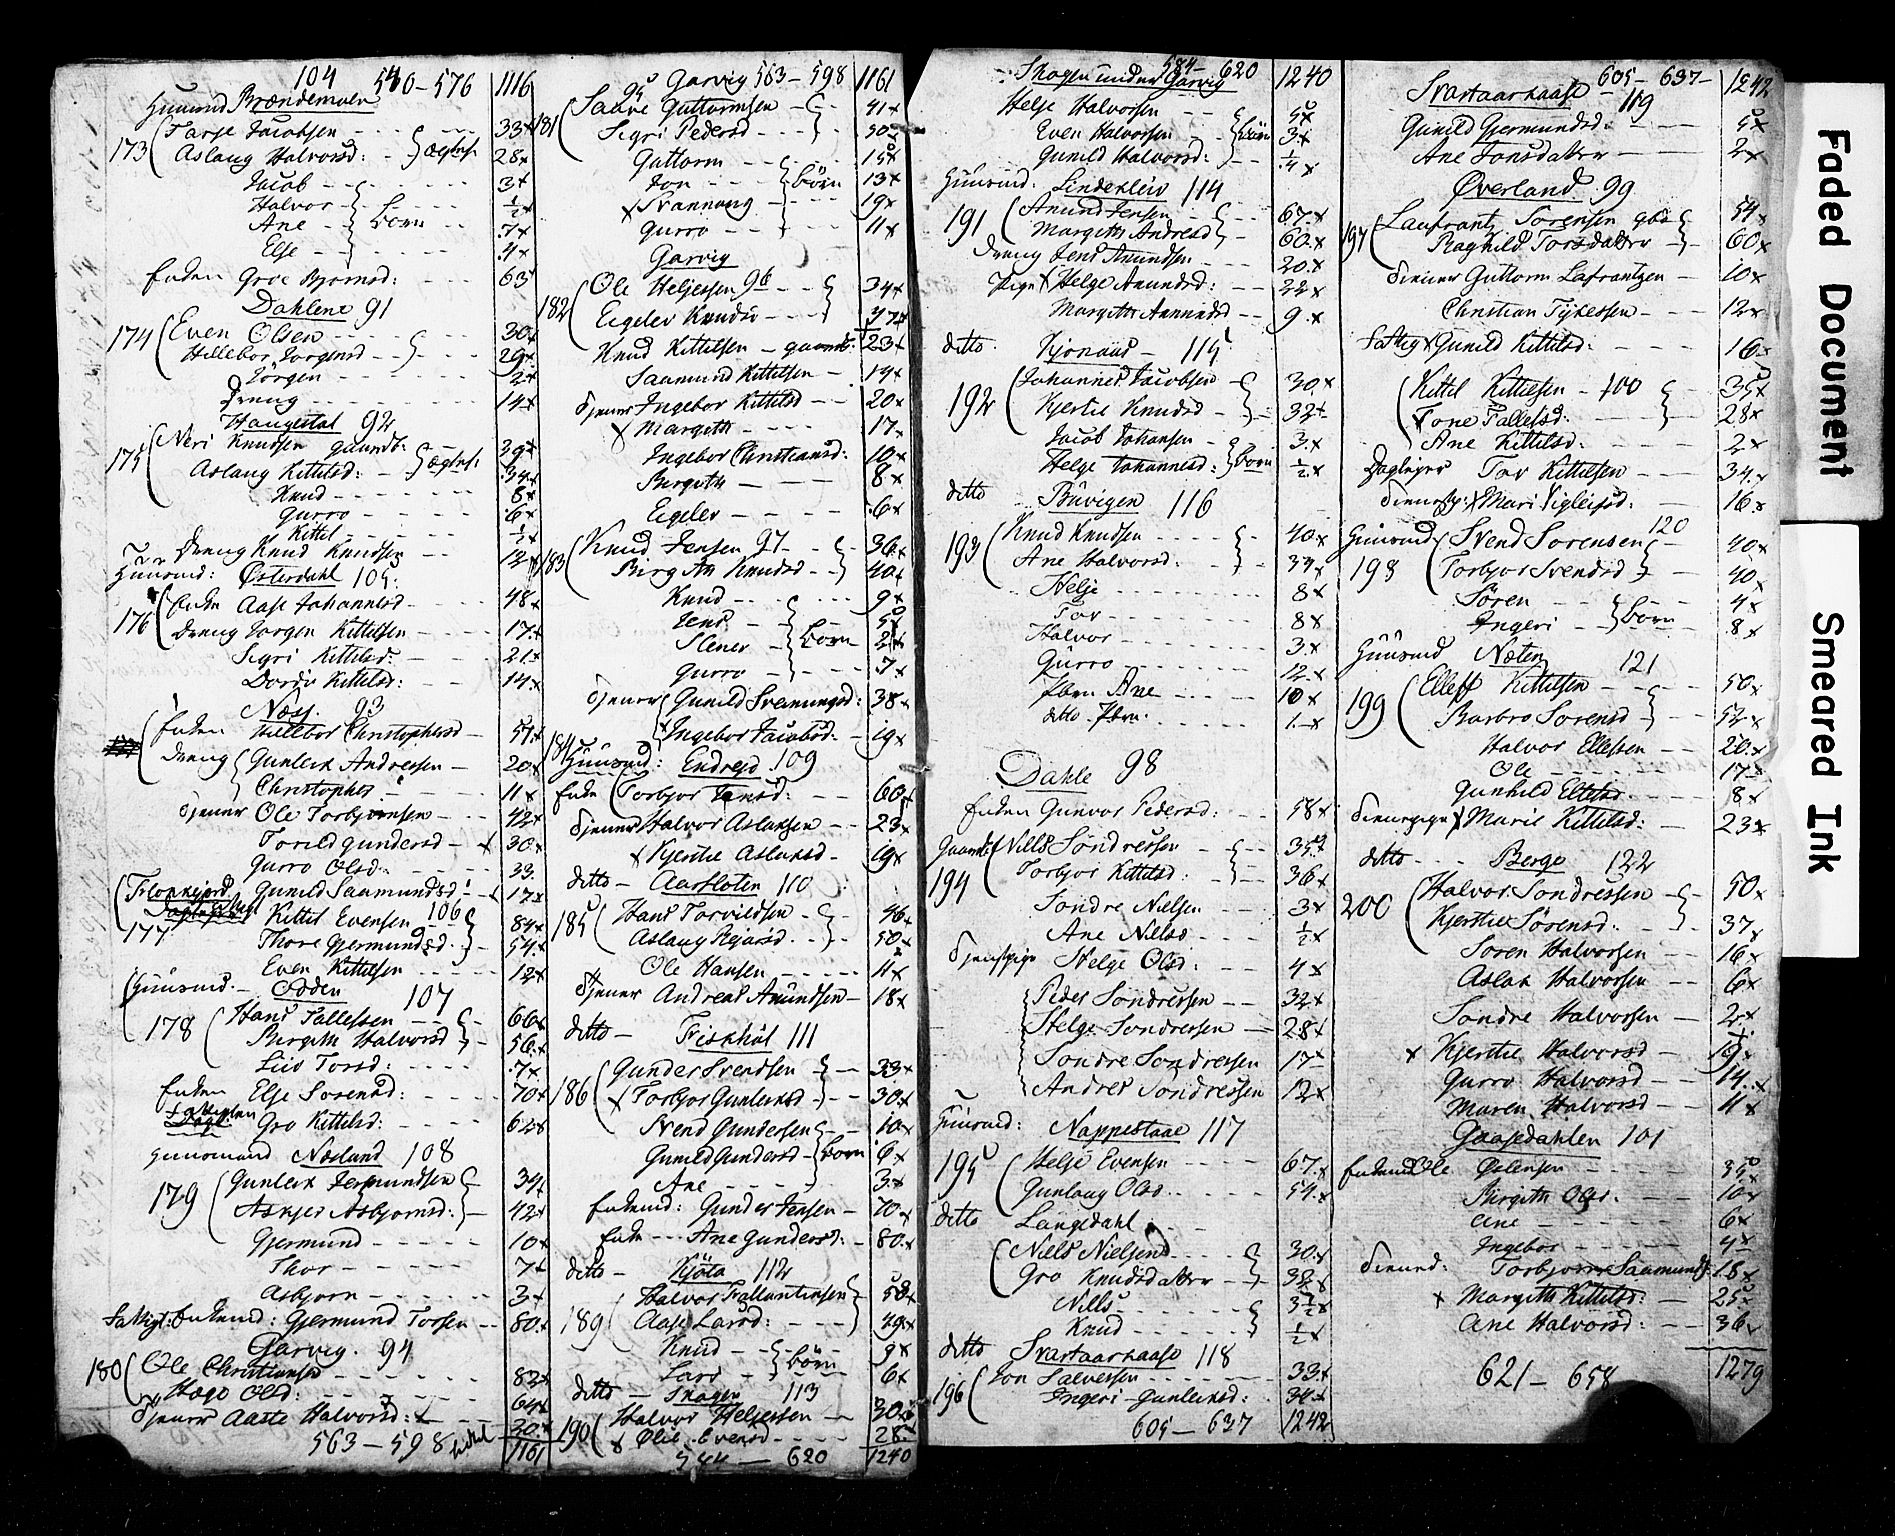 104 540-576 1116
Huusmd Brændemoen
173 Tarje Jacobsen 33x
Aslaug Halvorsd: ægtef. 28x
Jacob 3x
Halvor ½x
Ane børn 7x
Else 4x
Enken Groe Bjornsd: 63
Dahlene 91
174 Even Olsen 30x
Hillebor Jorgensd 29x
Jörgen 2x
Dreng 14x
Haugestøl 92
175 Neri Knudsen gaardb. 39x
Aslaug Kittilsd: ægtef: 34x
Knud 8x
Gurro 6x
Kittel ½x
Dreng Knud Knudsen 12x
Huusmd: Østerdahl 105.
176 Enken Aase Johannesd 48x
Dreng Jorgen Kittilsen 17x
Sigri Kittilsd: 21x
Dordi Kittilsd: 14x
Næss. 93
Enken Hillebor Christophersd 54x
Dreng Gunlech Andresen 20x
Christopher 11x
tjener Ole Torbjornsen 42x
Torild Gundersd x 30x
Gurro Olsd: 33.
Gunild Saamundsd: 17x
177 Kittil Evensen 106 84x
Thore Gjermundsd. 54x
Even Kittilsen 12x
Huusmd. Odden 107
178 Hans Tallefsen 66x
Birgith Halvorsd 56x
Liv Torsd: 7x
Enken Else Sorensd: 70x
Gro Kittilsd: 62x
Huusmand Næslund 108
179 Gunlech Jermundsen 34x
Askjer Asbjornsd: 42x
Gjermund 10x
Thor 7x
Asbjorn 3x
Fattig: Enkemd: Gjermund Torsen 80x
Garvig. 94
180 Ole Christiansen 82x
Hæge Olsd: 64x
tjener Aaste Halvorsd: x 30x
563-598 1161
95 Garvig 563-598 1161
181 Saave Guttormsen 41x
Sigri Pedersd 50x
Guttorm 15x
Jon børn 13x
x Svannaug 19x
Gurro 11x
Garvig
182 Ole Heljessen 96 34x
Eigelev Knudsd 47x
Knud Kittilsen gaardb: 23x
Saamund Kittilsen 14x
tjener Ingebor Kittilsd 20x
x Margith 17x
Ingebor Christiansd: 10x
Birgith 8x
Eigelev 6x
183 Knud Jensen 97 36x
Birgith Knudsd 40x
Knud 9x
Jens 5x
Stener børn 2x
Gurro 7x
tjener Gunild Svennungsd: 38x
x Ingebor Jacobsd: 19x
184 Huusmd: Endresd 109
Enke Torbjor Jensd: 60x
tjener Halvor Aslaksen 23x
x Kjerstie Aslaksd 19x
ditto Aarsloten 110
185 Hans Torvildsen 46x
Aslaug Rejarsd. 50x
Ole Hansen 11x
tjener Andreas Amundsen 18x
ditto Friskhøl 111
186 Gunder Svendsen 33x
x Torbjor Gunleksd 30x
Svend Gundersen 10x
Gunild Gundersd børn 6x
Ane 3x
Enkemd: Gunder Jensen 70x
Enke Ane Gundersd: 80x
ditto Kjøta 112
189 Halvor Fallentinsen 50x
Aase Larsd: 49x
Knud 9x
Lars børn 6x
ditto Skogen 113
190 Halvor Heljessen 30x
x Olie Evensd 28x
584 - 620 1240
Skogen under Garvig 584-620 1240
Helje Halvorsen 5x
Even Halvorsen børn 3x
Gunild Halvorsd: ¼x
Huusmd: Lindekleiv 114
191 Amund Jensen 67x
Margith Andresd 60x
Dreng Jens Amundsen 20x
Pige x Helge Amundsd: 22x
Margith Amundsd 9x
ditto Kjonaas 115
192 Johannes Jacobsen 30x
Kjerstie Knudsd 32x
Jacob Johansen 3x
Helge Johannesd: børn ½x
ditto Buvigen 116
193 Knud Knudsen 40x
Ane Halvorsd: 37x
Helje 8x
Tor 8x
Halvor 3x
Gurro 12x
Jbm Ane 10x
ditto Jbm. 1x
Dahle 98
Enken Gunvor Pedersd: 58x
194 Gaardb. Nills Sondressen 35x
Torbjor Kittilsd: 36x
Sondre Nielsen 3x
Ane Nielsd ½x
Tjenstpige Helge Olsd: 4x
Peder Sondressen 32x
Helge Sondressen 28x
Sondre Sondressen 17
Andres Sondressen 12x
Huusmd: Nappestaae 117
195 Helje Evensen 67x
Gunlaug Olsd. 54x
ditto Langedahl
Niels Nielsen 30x
Gro Knudsdatter 32x
Nills 3½x
Knud ½x
ditto Svartaarhaase 118
196 Jon Salvessen 33x
Ingeri Gunleksd: 34x
605-637 1242
605-637 1242
Svartaarhaase 119
Gunild Gjermundsd: 5x
Ane Jonsdatter 2x
Øverland 99
197 Laufrantz Sorensen gbr 54x
Raghild Torsdatter 60x
tiener Guttorm Lafrantzen 10x
Christian Tykessen 12x
Fattig x Gunild Kittilsd: 16x
Kittil Kittilsen 100 35x
Tone Tallefsd: 28x
Ane Kittilsd: 2x
Daglejer Tor Kittilsen 34x
tienestp: x Mari Vigleifsd: 16x
Huusmd Svend Sorensen 120 40x
198 Torbjor Svendsd 40x
Sören 4x
Ingeri børn 8x
Huusmd Næten 121
199 Elleff Kittilsen 50x
Barbro Sorensd 52x
Halvor Ellefsen 20x
Ole 17
Gunhild Ellefsd 8x
tienstpige x Marie Kittilsd: 23x
ditto Berge 122
200 Halvor Sondressen 50x
Kjerstie Sørensd: 37x
Soren Halvorsen 16x
Aslak Halvorsen 6x
Sondre Halvorsen 2x
x Kjerstie Halvorsd 19x
Gurro Halvorsd 14x
Maren Halvorsd 11x
Gaasedahlen 101
Enkemd Ole Gelensen 35x
Birgith Olsd: 10x
Ane 6x
Ingebor 4x
tienred: Torbjorn Saamunds: 18x
x Margith Kittilsd: 25x
Ane Halvorsd: 36x
621-658 1279
Faded Document
Smeared Ink